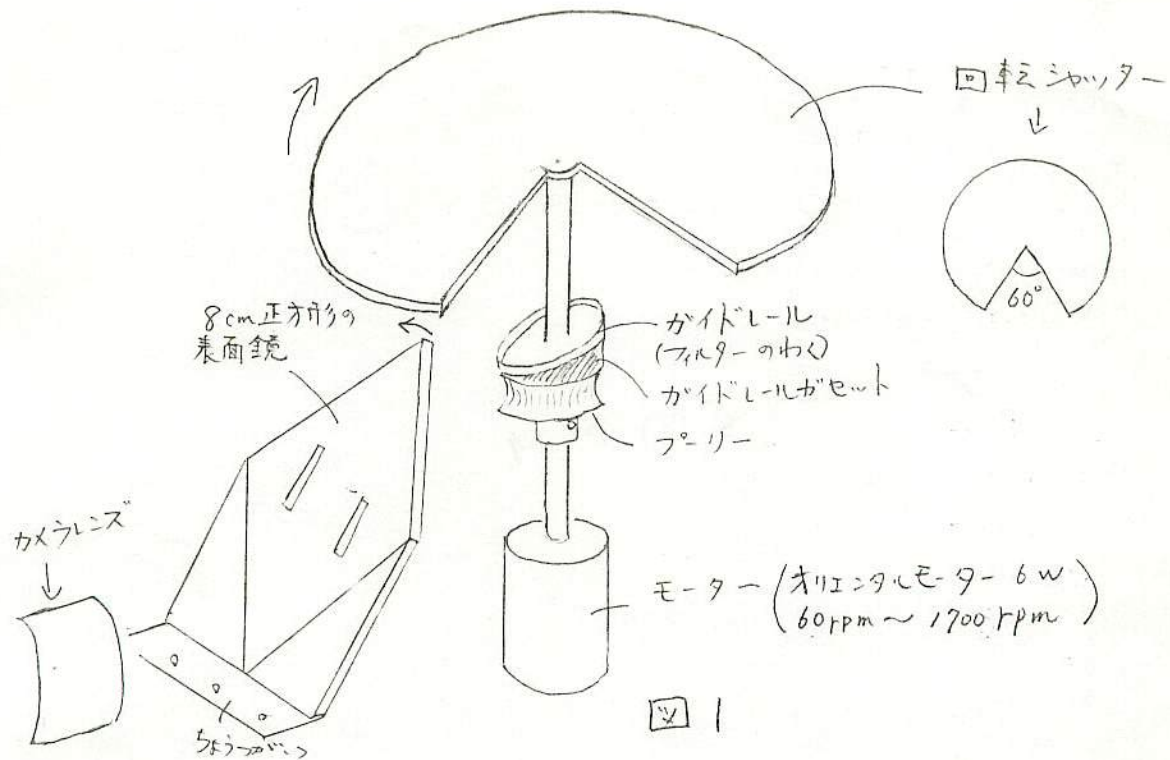 回転シャッター
60°
8cm正方形の
表面鏡
ガイドレール
(フィルターのわく)
ガイドレールガセット
プーリー
カメラレンズ
モーター(オリエンタルモーター 6W
60rpm～1700rpm)
ちょうつがい
図1